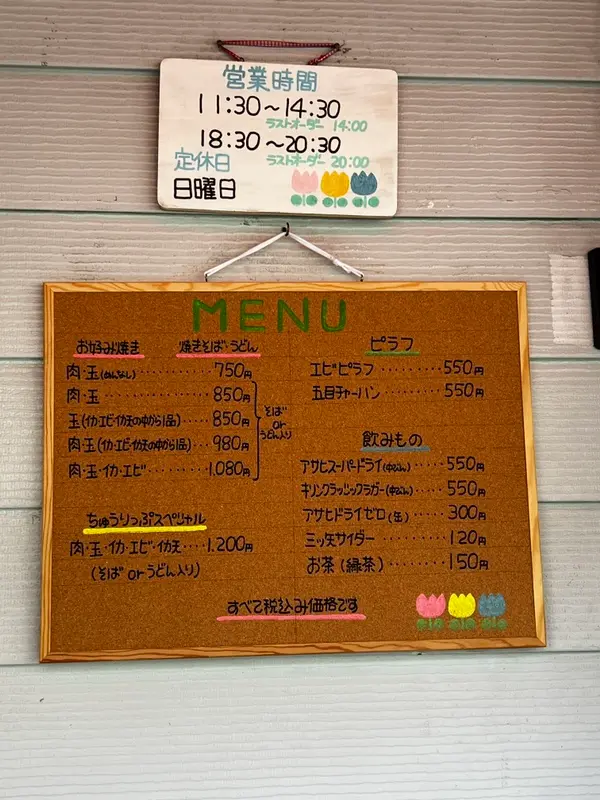 営業時間
11:30～14:30
ラストオーダー 14:00
18:30～20:30
ラストオーダー 20:00
定休日
日曜日
MENU
お好み焼き 焼きそば・うどん
肉・玉(めんなし)・・・・・・・・・・750円
肉・玉・・・・・・・・・・・・850円
玉(イカ・エビ・イカ天の中から1品)・・・850円
肉・玉(イカ・エビ・イカ天の中から1品)・・・980円
肉・玉・イカ・エビ・・・・・・・・1,080円
そば
or
うどん入り
ちゅうりっぷスペシャル
肉・玉・イカ・エビ・イカ天・・・1,200円
(そば or うどん入り)
ピラフ
エビピラフ・・・・・・・・・550円
五目チャーハン・・・・・・・550円
飲みもの
アサヒスーパードライ(中びん)・・・・・550円
キリンクラッシックラガー(中びん)・・・・・550円
アサヒドライゼロ(缶)・・・・・300円
三ッ矢サイダー・・・・・・・・・120円
お茶(緑茶)・・・・・・・・150円
すべて税込み価格です